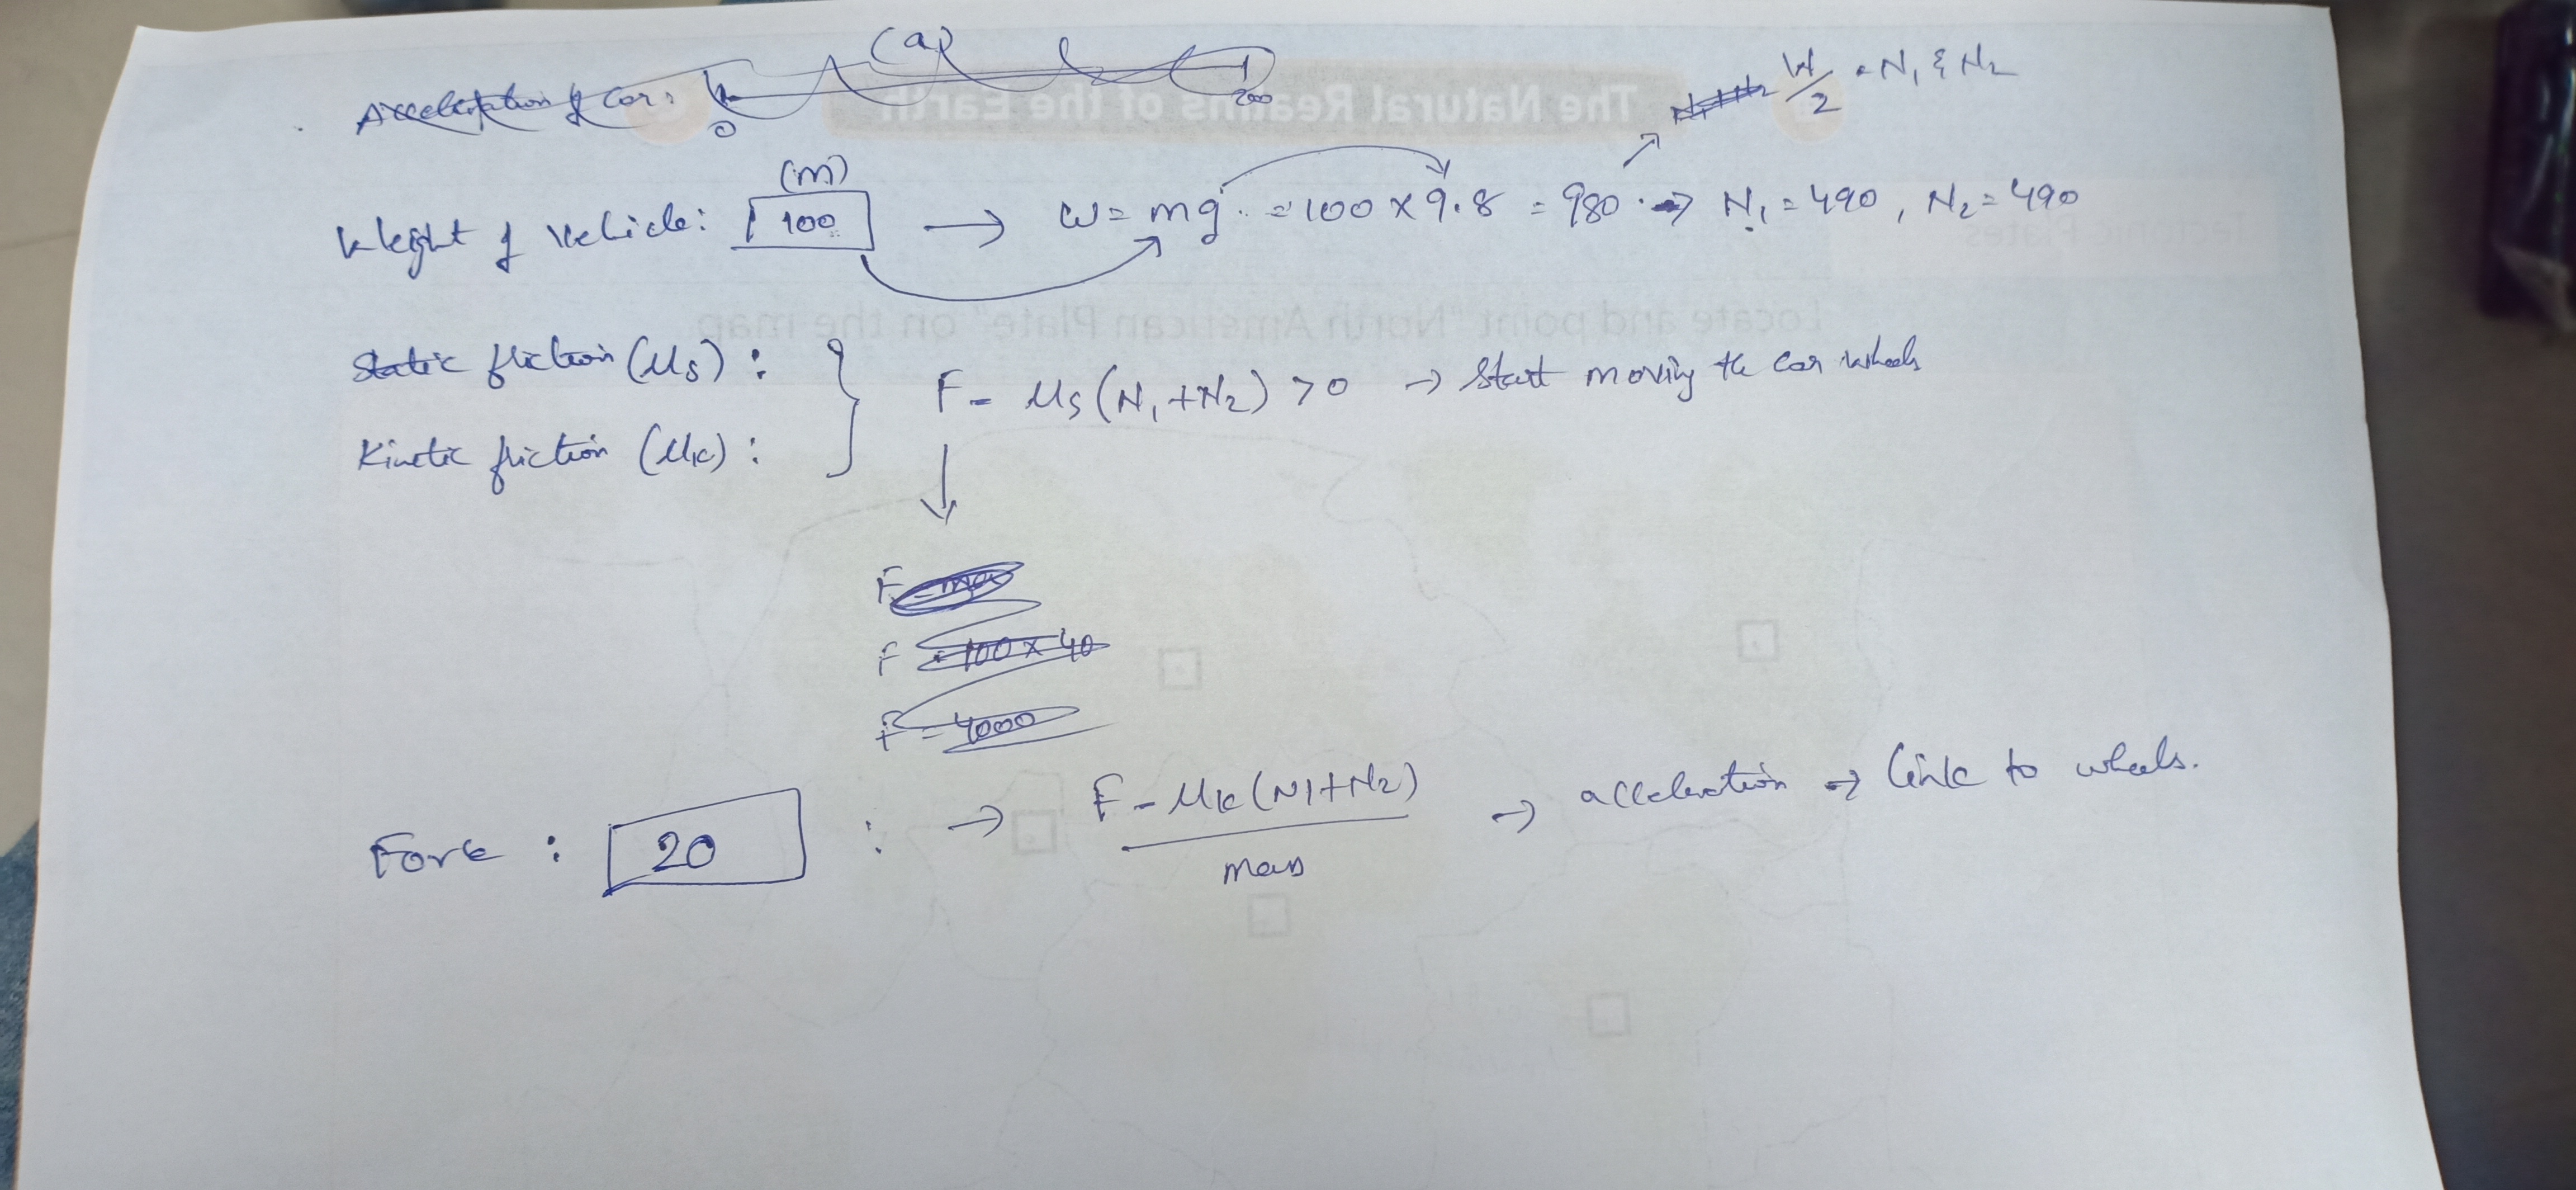 Acceleration of car: (a) 0 200
W/2 = N1 & N2
Weight of Vehicle: (m) 100 → W = mg = 100 x 9.8 = 980 → N1 = 490, N2 = 490
Static friction (μs) :
F - μs (N1 + N2) > 0 → Start moving the car wheels
Kinetic friction (μk) :
F = ma
F = 100 x 40
F = 4000
Force : 20 : → F - μk (N1 + N2) / mass → acceleration → link to wheels.
The Natural Realms of the Earth
Tectonic Plates
Locate and point "North American Plate" on the map